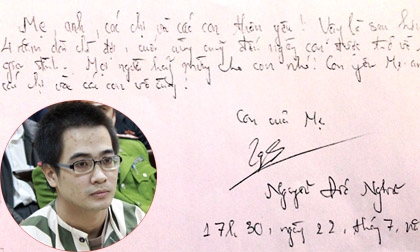 Mẹ, anh, các chị và các con thân yêu! Vậy là sau
4 năm dài chờ đợi, cuối cùng cũng đến ngày con được trở về
gia đình. Mọi người hãy mừng cho con nhé! Con yêu Mẹ, an
các chị và các con vô cùng!
Con của Mẹ
Nguyễn Đức Nghĩa
17h 30, ngày 22, tháng 7,